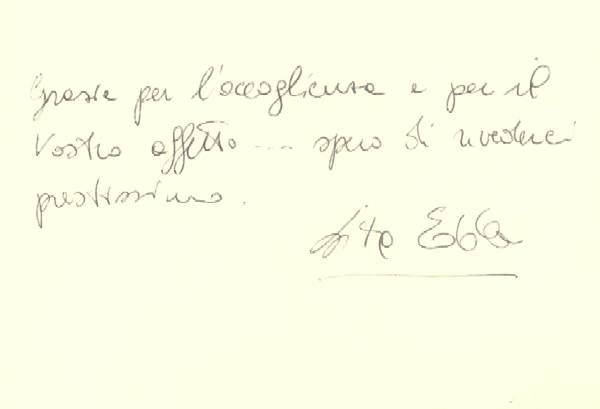 Grazie per l'accoglienza e per il
Vostro affetto .... spero di rivederci
prestissimo.